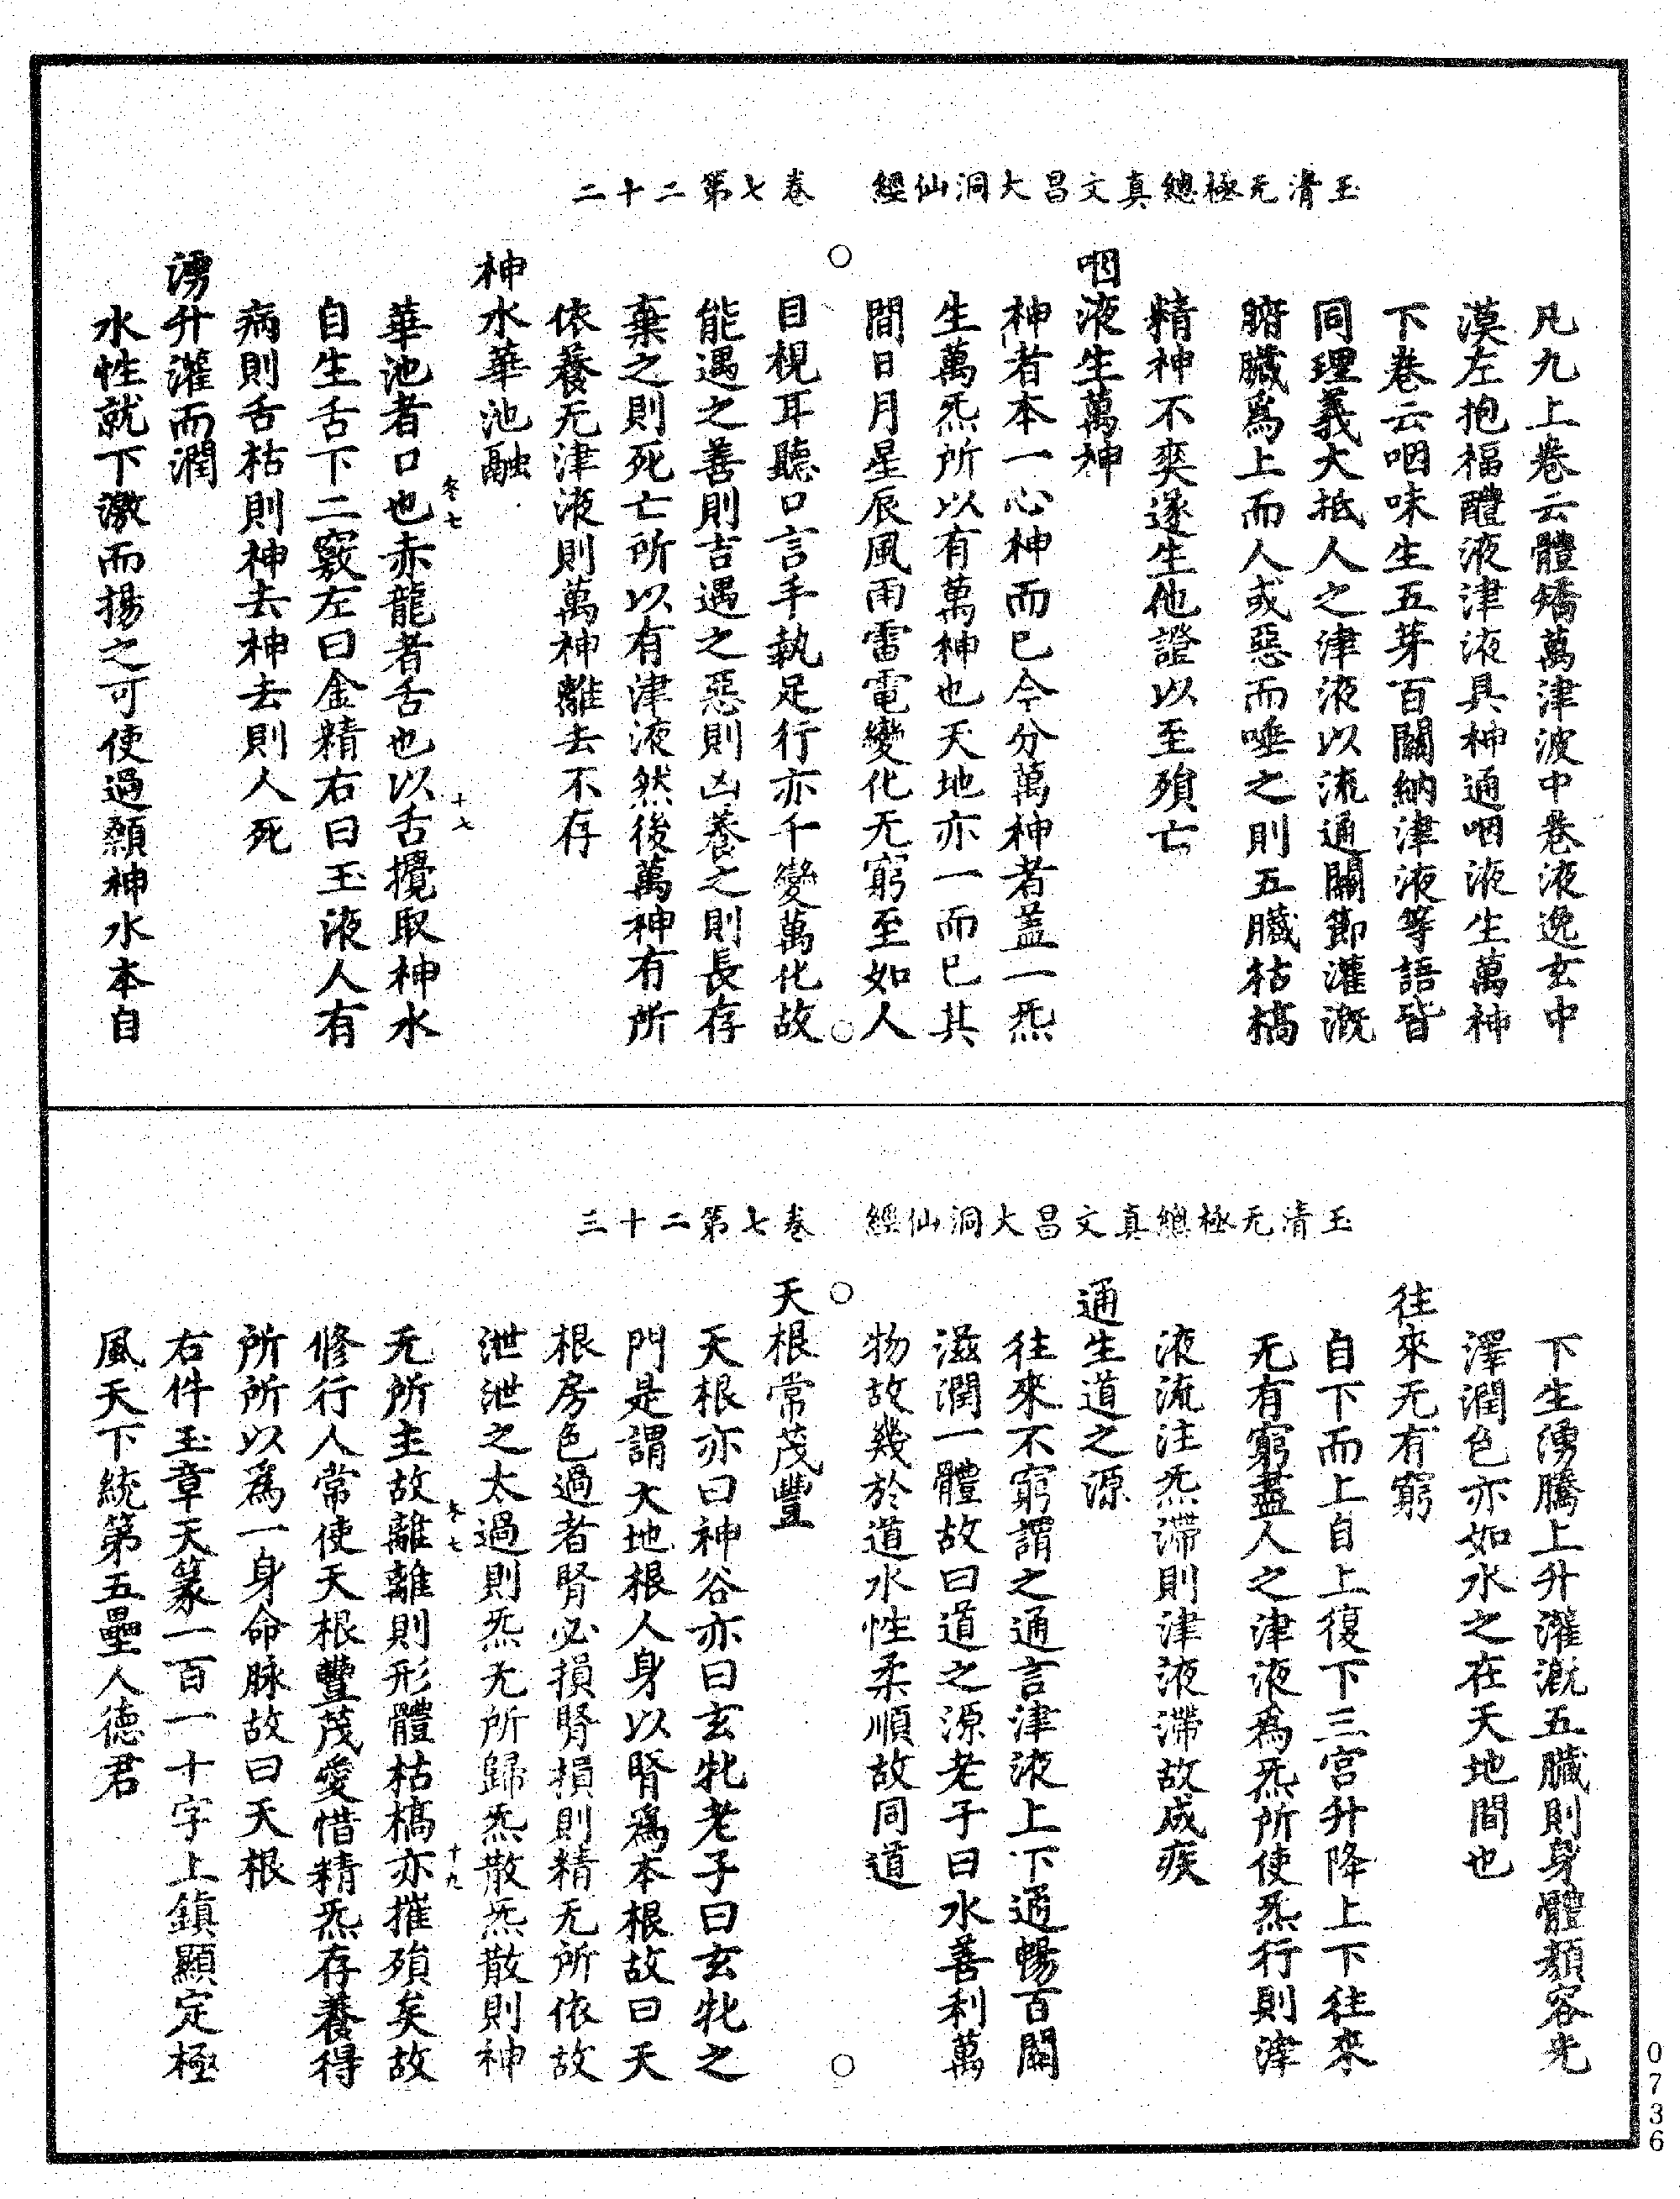 玉清无極總真文昌大洞仙經 卷七第二十二
凡九上卷云體矯萬津波中卷液逸玄中
漠左抱福醴液津液具神通咽液生萬神
下卷云咽味生五芽百關納津液等語皆
同理義大抵人之津液以流通關節灌溉
腑臟爲上而人或惡而唾之則五臟枯槁
精神不爽遂生他證以至殞亡
咽液生萬神
神者本一心神而已今分萬神者蓋一炁
生萬炁所以有萬神也天地亦一而已其
間日月星辰風雨雷電變化无窮至如人
○ ○
目視耳聽口言手執足行亦千變萬化故
能遇之善則吉遇之惡則凶養之則長存
棄之則死亡所以有津液然後萬神有所
依養无津液則萬神離去不存
神水華池融
卷七 十七
華池者口也赤龍者舌也以舌攪取神水
自生舌下二竅左曰金精右曰玉液人有
病則舌枯則神去神去則人死
湧升灌而潤
水性就下激而揚之可使過顙神水本自
玉清无極總真文昌大洞仙經 卷七第二十三
下生湧騰上升灌溉五臟則身體顏容光
澤潤色亦如水之在天地間也
往來无有窮
自下而上自上復下三宮升降上下往來
无有窮盡人之津液爲炁所使炁行則津
液流注炁滯則津液滯故成疾
通生道之源
往來不窮謂之通言津液上下通暢百關
滋潤一體故曰道之源老子曰水善利萬
物故幾於道水性柔順故同道
○ ○
天根常茂豐
天根亦曰神谷亦曰玄牝老子曰玄牝之
門是謂大地根人身以腎爲本根故曰天
根房色過者腎必損腎損則精无所依故
泄泄之太過則炁无所歸炁散炁散則神
卷七 十九
无所主故離離則形體枯槁亦摧殞矣故
修行人常使天根豐茂愛惜精炁存養得
所所以爲一身命脉故曰天根
右件玉章天篆一百一十字上鎮顯定極
風天下統第五壘人德君
0736